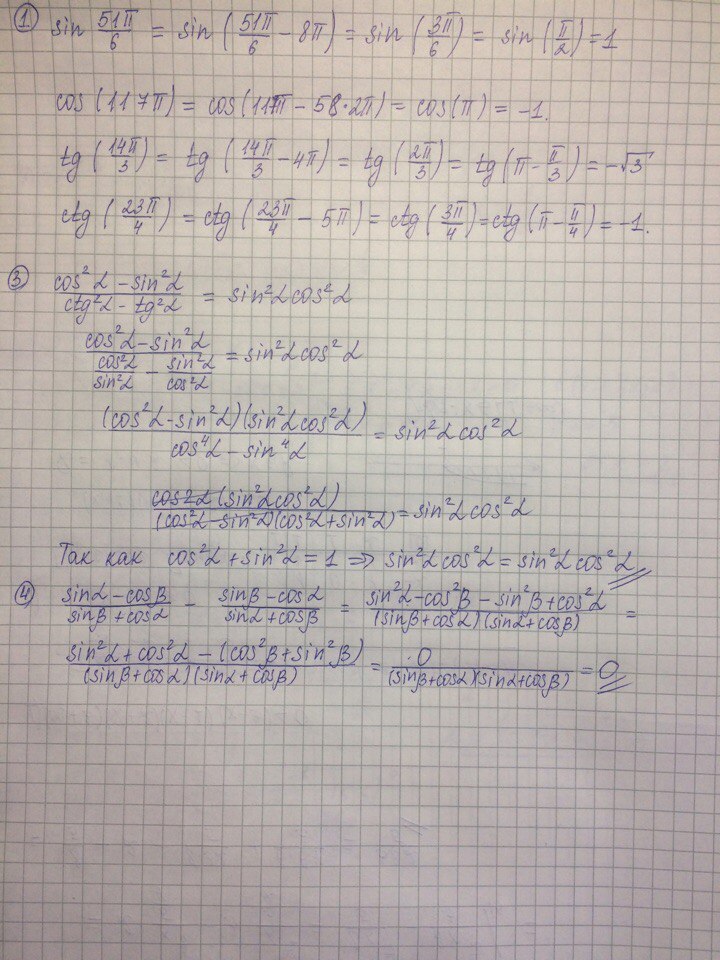 ① sin 51π/6 = sin (51π/6 - 8π) = sin (3π/6) = sin (π/2) = 1
cos (117π) = cos (117π - 58·2π) = cos(π) = -1.
tg (14π/3) = tg (14π/3 - 4π) = tg (2π/3) = tg (π - π/3) = -√3
ctg (23π/4) = ctg (23π/4 - 5π) = ctg (3π/4) = ctg (π - π/4) = -1.
③ (cos²α - sin²α)/(ctg²α - tg²α) = sin²α cos²α
(cos²α - sin²α)/(cos²α/sin²α - sin²α/cos²α) = sin²α cos²α
(cos²α - sin²α)(sin²α cos²α)/(cos⁴α - sin⁴α) = sin²α cos²α
cos2α (sin²α cos²α)/(cos²α - sin²α)(cos²α + sin²α) = sin²α cos²α
Так как cos²α + sin²α = 1 ⇒ sin²α cos²α = sin²α cos²α
④ (sinα - cosβ)/(sinβ + cosα) - (sinβ - cosα)/(sinα + cosβ) = (sin²α - cos²β - sin²β + cos²α)/(sinβ + cosα)(sinα + cosβ) =
(sin²α + cos²α - (cos²β + sin²β))/(sinβ + cosα)(sinα + cosβ) = 0/(sinβ + cosα)(sinα + cosβ) = 0